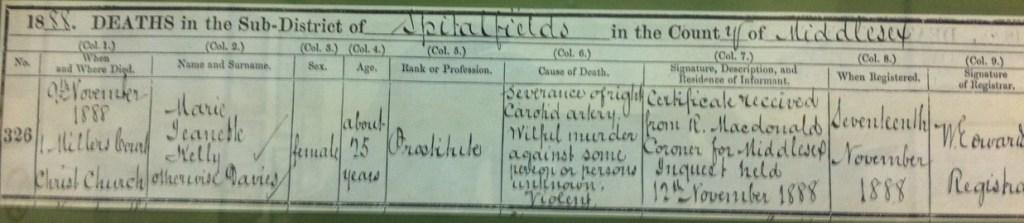 1888. DEATHS in the Sub-District of Spitalfields in the County of Middlesex
(Col. 1.) (Col. 2.) (Col. 3.) (Col. 4.) (Col. 5.) (Col. 6.) (Col. 7.) (Col. 8.) (Col. 9.)
No. When and Where Died. Name and Surname. Sex. Age. Rank or Profession. Cause of Death. Signature, Description, and Residence of Informant. When Registered. Signature of Registrar.
326
9th November
1888
1 Millers Court
Christ Church
Marie
Jeanette
Kelly
otherwise Davies
female
about
25
years
Prostitute
Severance of right
Carotid artery.
Wilful murder
against some
person or persons
unknown.
Violent.
Certificate received
from R. Macdonald
Coroner for Middlesex
Inquest held
12th November 1888
Seventeenth
November
1888
W. Edward
Registra